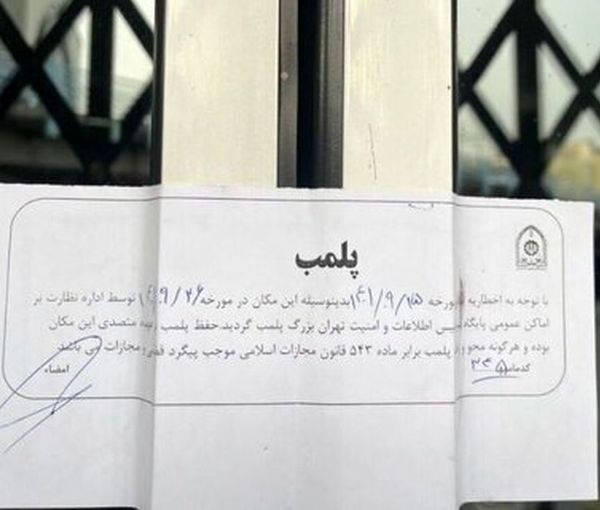 پلمب
با توجه به اخطاریه مورخه ۱۴۰۱/۹/۱۵ بدینوسیله این مکان در مورخه ۹/۲۶ توسط اداره نظارت بر
اماکن عمومی پایگاه پلیس اطلاعات و امنیت تهران بزرگ پلمب گردید. حفظ پلمب بعهده متصدی این مکان
بوده و هرگونه محو و پلمب برابر ماده ۵۴۳ قانون مجازات اسلامی موجب پیگرد قضایی و مجازات می باشد.
کدمامور
امضاء